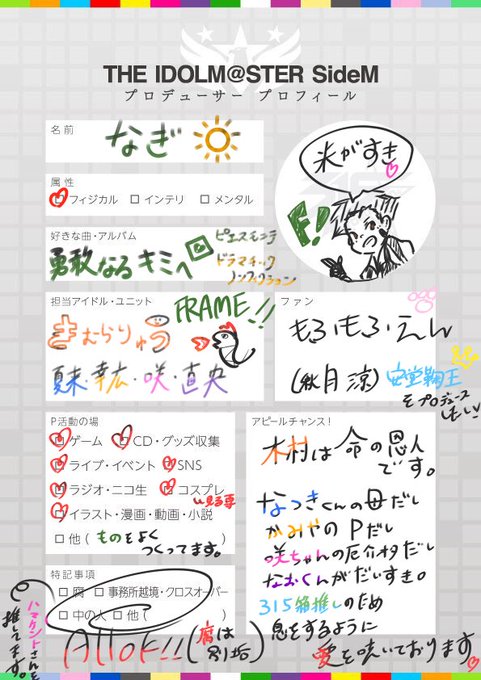 THE IDOLM@STER SideM
プロデューサー プロフィール
名前
なぎ
米がすき
F!
属性
フィジカル □ インテリ □ メンタル
好きな曲・アルバム
勇敢なるキミへ
ピエスモンテ
ドラマチック
ノンフィクション
担当アイドル・ユニット
FRAME!!
きむらりゅう
夏来・幸広・咲・直央
ファン
もふもふえん
(秋月 涼)
も プロデュース
したい
P活動の場
ゲーム CD・グッズ収集
ライブ・イベント SNS
ラジオ・ニコ生 コスプレ
見る専
イラスト・漫画・動画・小説
□ 他 ( ものをよく
つくってます。 )
アピールチャンス!
木村は命の恩人
です。
なつきくんの母だし
かみやのPだし
咲ちゃんの厄介オタだし
なおくんがだいすき。
315箱推しのため
息をするように
愛を呟いております
特記事項
□ 腐 □ 事務所越境・クロスオーバー
□ 中の人 □ 他 ( )
All OK!! (腐は
別垢)
ハマケントさんを
推してます。